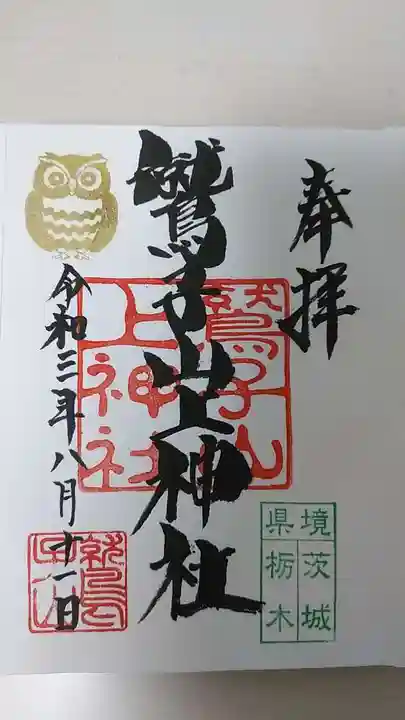 奉拝
鷲子山上神社
鷲子山
上神社
令和三年八月十一日
境
県
茨城
栃木